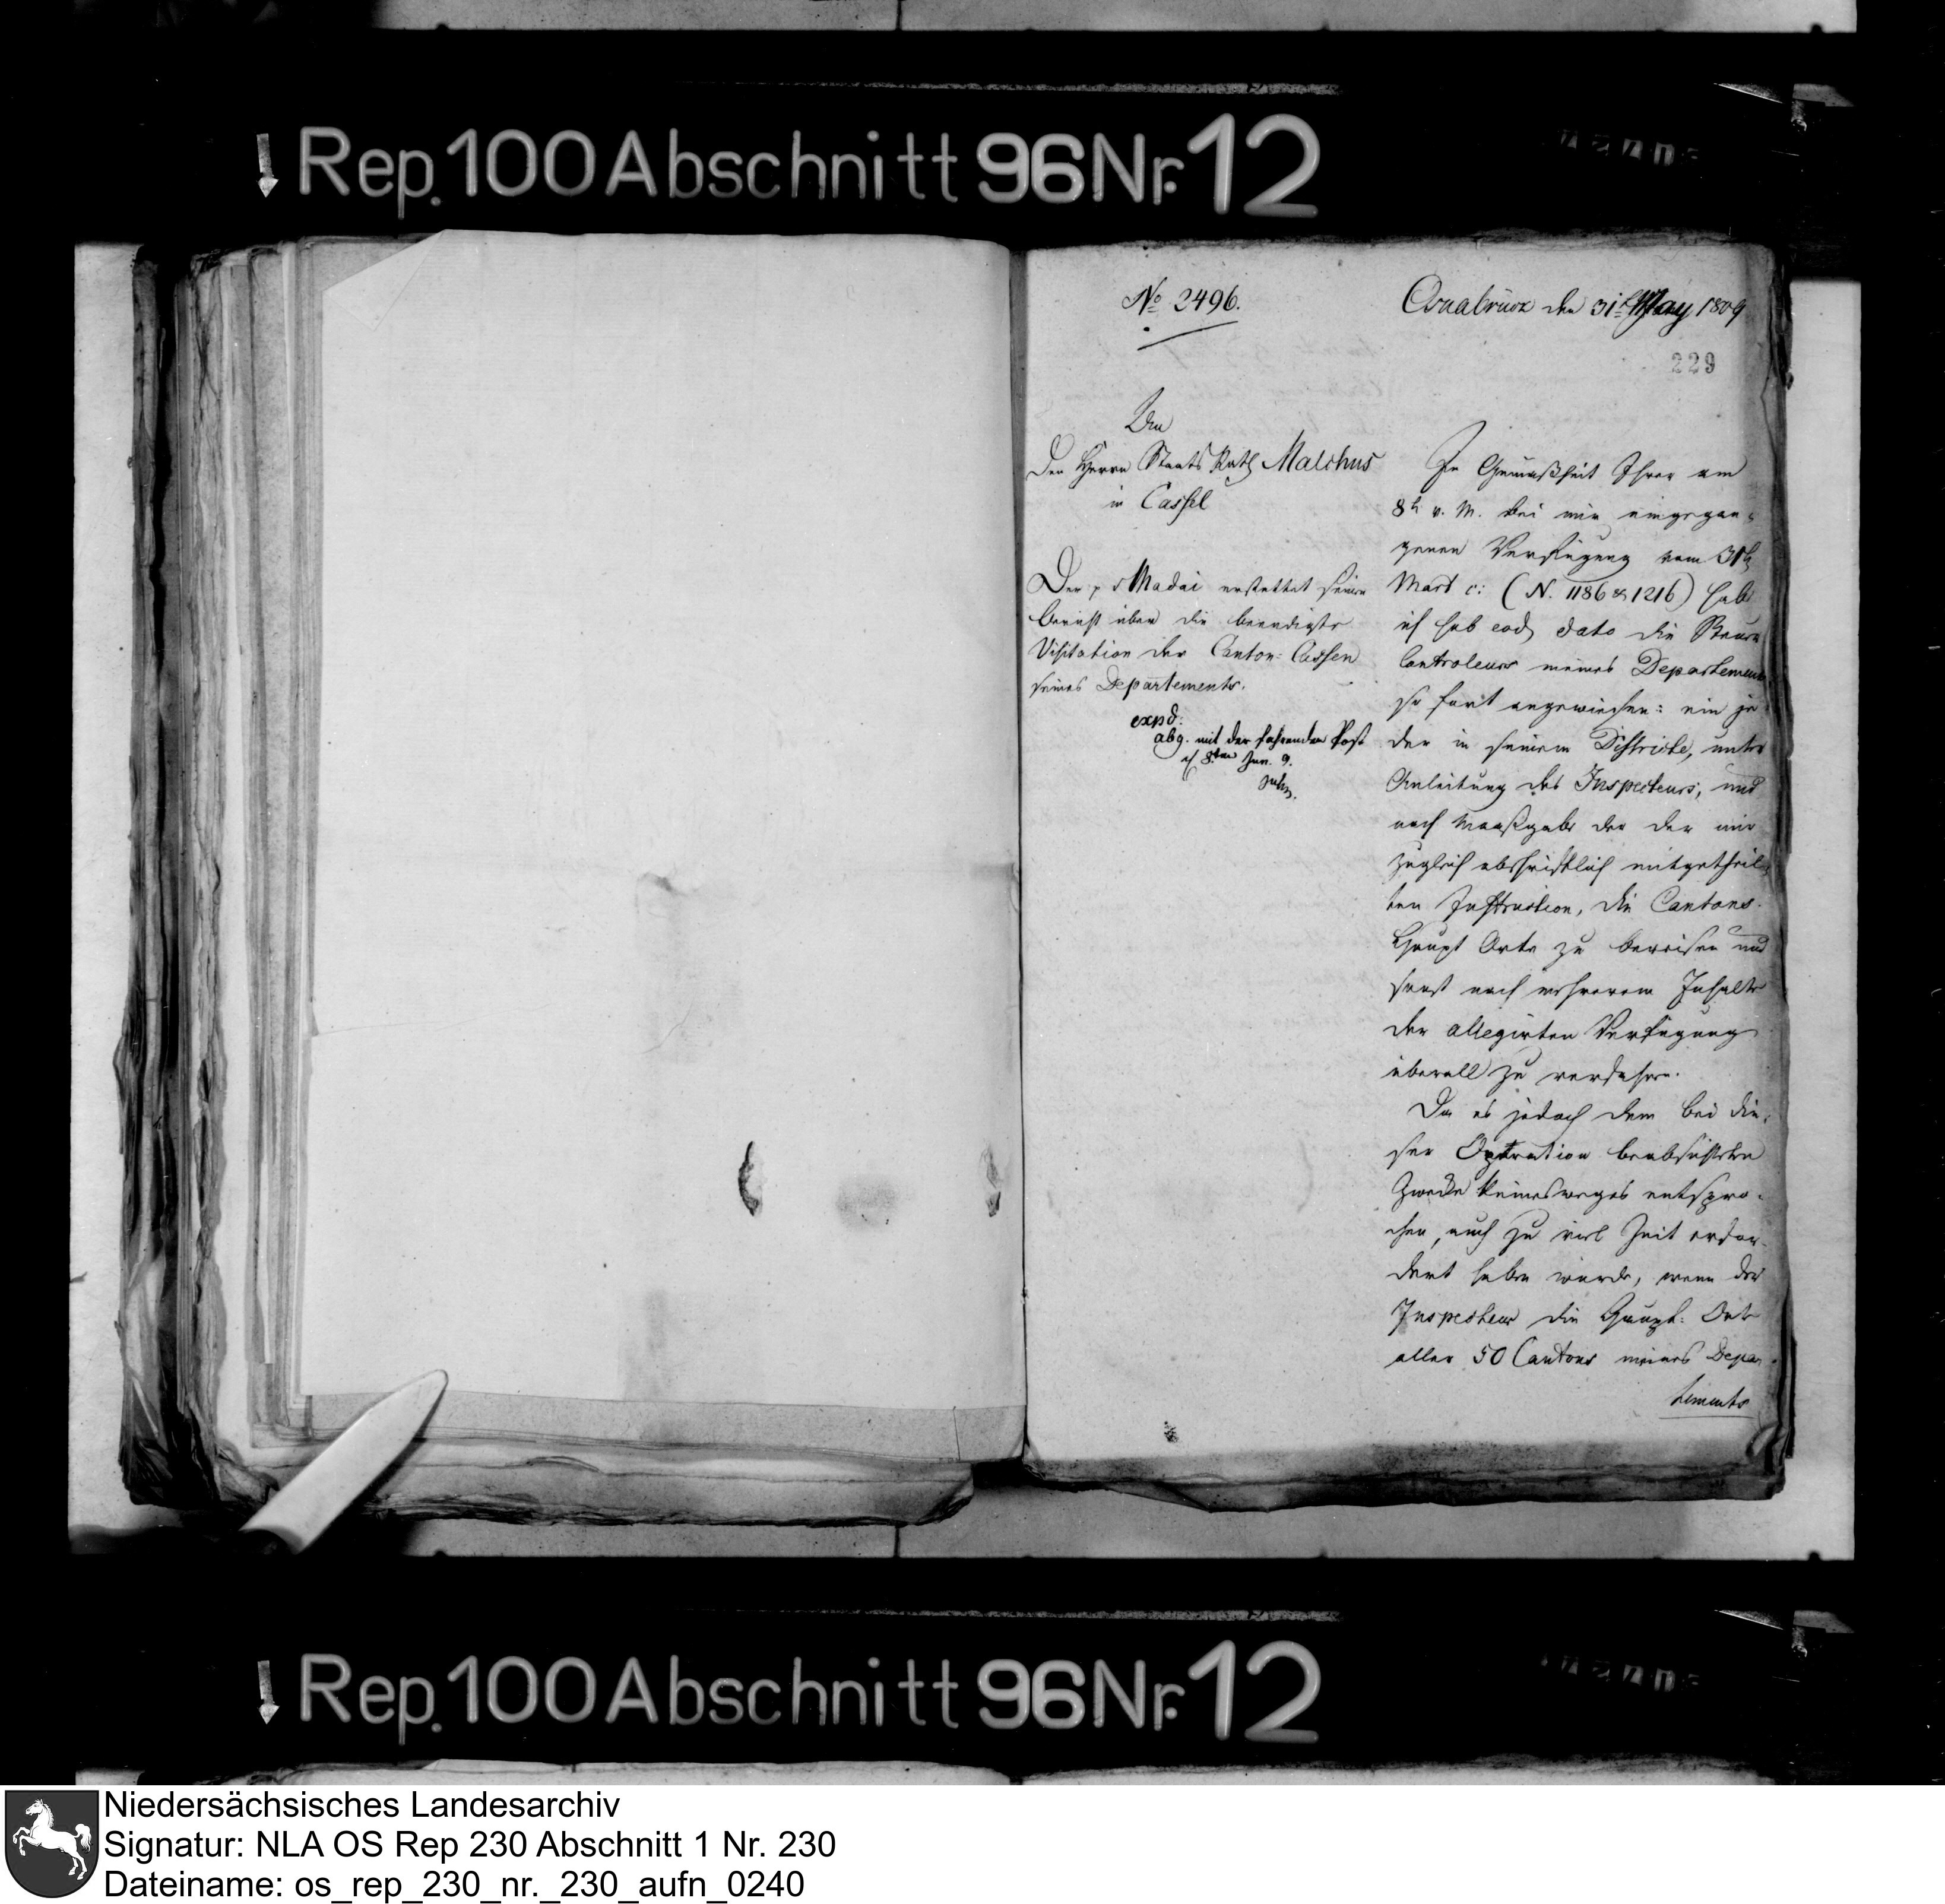 Rep. 100 Abschnitt 96 Nr. 12
No 2496.
Osnabrück den 31t May 1809
229
An
den Herrn Staats Rath Malchus
in Cassel
Der p v Madai erstattet seinen
Bericht über die beendigte
Visitation der Canton-Cassen
seines Departements.
expd:
abg. mit der fahrenden Post
d 8ten Jun. 9.
In Gemäßheit Ihrer am
8t v. M. bei mir eingegan-
genen Verfügung vom 31t
Mart c: (N. 1186 & 1216) habe
ich sub eod dato die Steuer
Controleurs meines Departements
so fort angewiesen: ein je
der in seinem Districte, unter
Anleitung des Inspecteurs, und
nach Maaßgabe der der mir
zugleich abschriftlich mitgetheil-
ten Instruction, die Cantons-
Haupt Orte zu bereisen und
sonst nach mehrerem Inhalte
der allegirten Verfügung
überall zu verfahren.
Da es jedoch dem bei die-
ser Operation beabsichteten
Zwecke keinesweges entspro-
chen, auch zu viel Zeit erfor-
dert haben würde, wenn der
Inspecteur die Haupt-Orte
aller 50 Cantons meines Depar-
tements
Rep. 100 Abschnitt 96 Nr. 12
Niedersächsisches Landesarchiv
Signatur: NLA OS Rep 230 Abschnitt 1 Nr. 230
Dateiname: os_rep_230_nr._230_aufn_0240